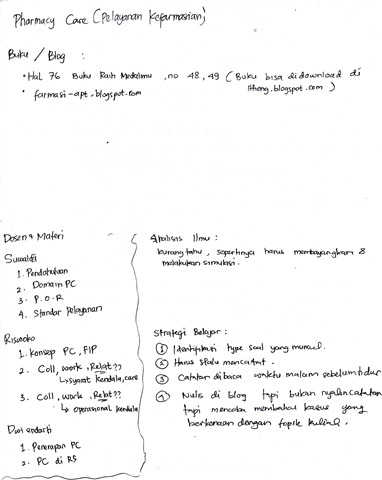 Pharmacy Care (Pelayanan Kefarmasian)
Buku / Blog :
• Hal 76 Buku Raih Medalimu , no 48, 49 ( Buku bisa didownload di
• farmasi-apt.blogspot.com
ltheng.blogspot.com )
Dosen & Materi
Suwaldi
1. Pendahuluan
2. Domain PC
3. P.O.R
4. Standar Pelayanan
Riswaka
1. Konsep PC, FIP
2. Coll, work, Relat??
↳ syarat kendala, care
3. Coll, work, Relat??
↳ operasional kendala
Dwi endarti
1. Penerapan PC
2. PC di RS
Analisis Ilmu :
kurang tahu, sepertinya harus membayangkan &
melakukan simulasi.
Strategi Belajar :
① Identifikasi type soal yang muncul.
② Harus slalu mencatat.
③ Catatan dibaca waktu malam sebelum tidur
④ Nulis di blog tapi bukan nyalin catatan
tapi mencoba membahas kasus yang
berkenaan dengan topik kuliah.